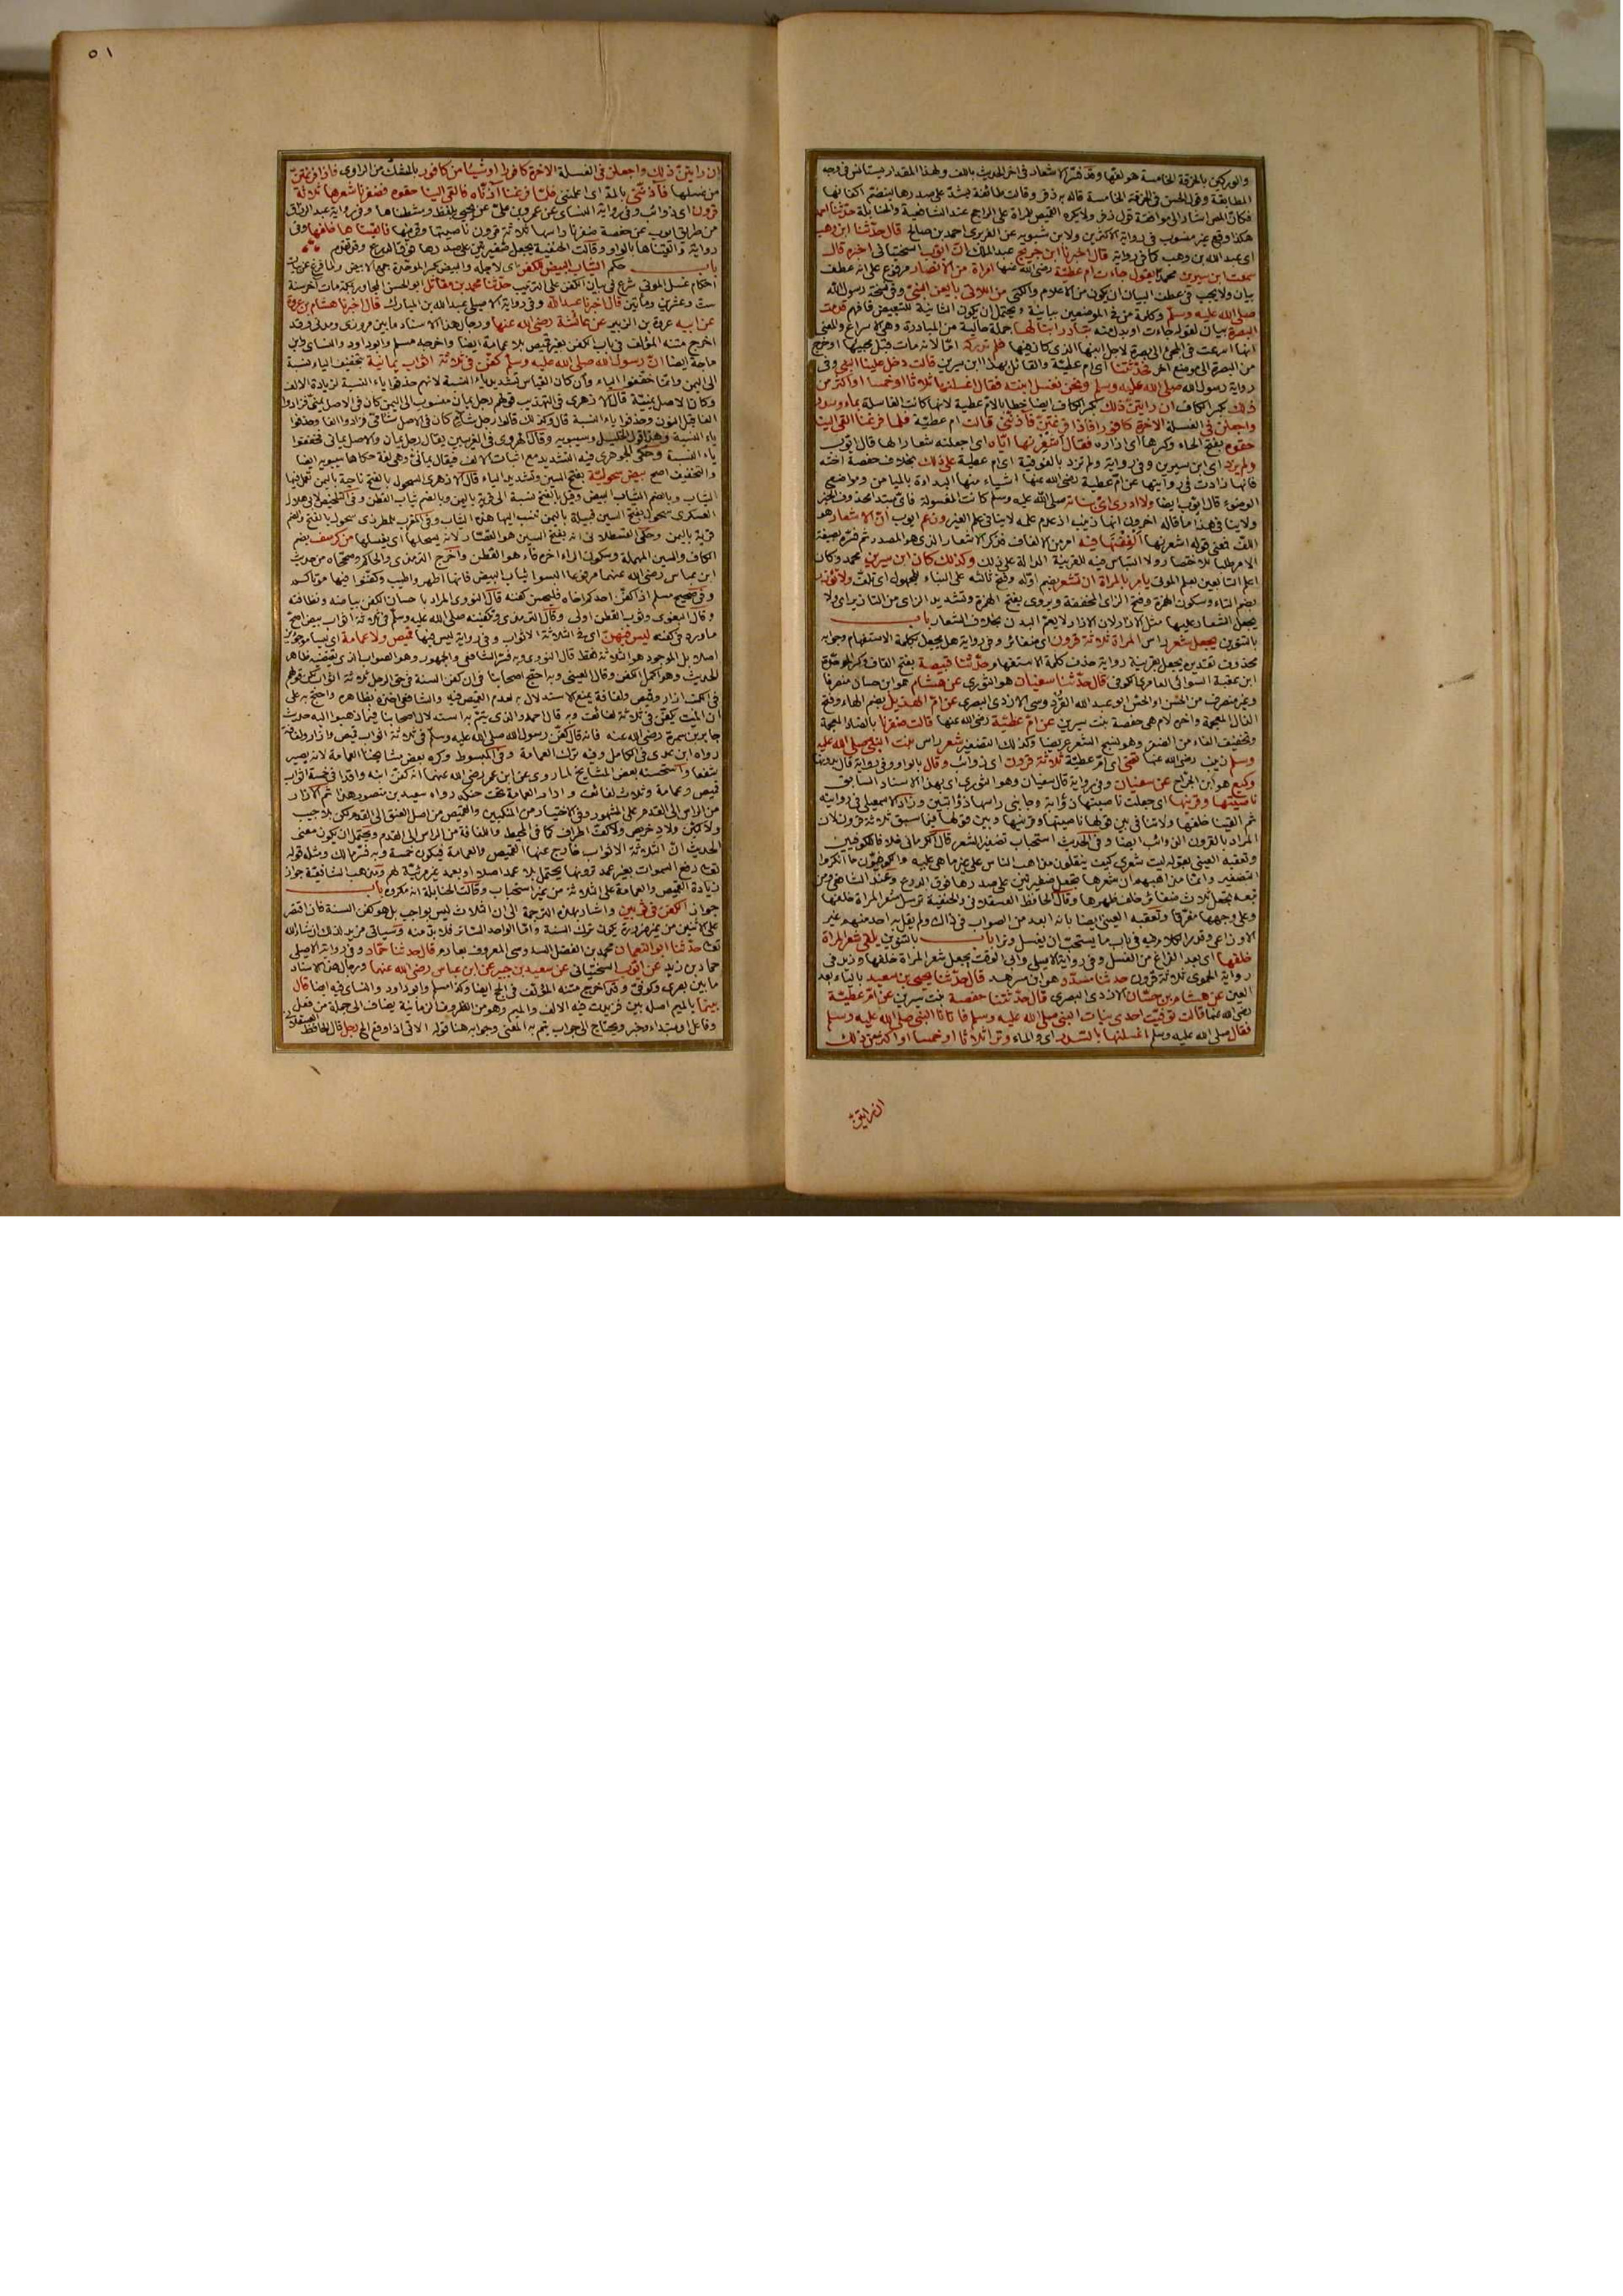 والوركين بالخرقة الخامسة هو لفها وقد فسر الاشعار في اخر الحديث باللف وبهذا المقدار يستأنس في وجه
المطابقة وقول الحسن في الخرقة الخامسة قال به زفر وقالت طائفة تشد على صدرها لينضم اكفانها
فكان المص اشار الى موافقة قول زفر ولا يكره القميص للمرأة على الراجح عند الشافعية والحنابلة حدثنا احمد
هكذا وقع غير منسوب في رواية الاكثرين ولابن شبويه عن الفربري احمد بن صالح قال حدثنا ابن وهب
اى عبد الله بن وهب كما في رواية قال اخبرنا ابن جريج عبد الملك ان ايوب السختياني اخبره قال
سمعت ابن سيرين محمدا يقول جاءت ام عطية رضى الله عنها امرأة من الانصار مرفوع على انه عطف
بيان ولا يجب في عطف البيان ان يكون من الاعلام والكنى من اللاتي بايعن النبي وفي نسخة رسول الله
صلى الله عليه وسلم وكلمة من في الموضعين بيانية ويحتمل ان يكون الثانية للتبعيض فافهم قدمت
البصرة بيان لقوله جاءت او بدل منه تبادر ابنا لها جملة حالية من المبادرة وهى الاسراع والمعنى
انها اسرعت في المجئ الى بصرة لاجل ابنها الذى كان فيها فلم تدركه اما لانه مات قبل مجيئها او خرج
من البصرة الى موضع اخر فحدثتنا اى ام عطية والقائل بهذا ابن سيرين قالت دخل علينا النبي وفي
رواية رسول الله صلى الله عليه وسلم ونحن نغسل ابنته فقال اغسلنها ثلاثا او خمسا او اكثر من
ذلك بكسر الكاف ان رايتن ذلك بكسر الكاف ايضا خطابا لام عطية لانها كانت الغاسلة بماء وسدر
واجعلن في الغسلة الاخرة كافورا فاذا فرغتن فآذنني قالت ام عطية فلما فرغنا القى الينا
حقوه بفتح الحاء وكسرها اى ازاره فقال اشعرنها اياه اى اجعلنه شعارا لها قال ايوب
ولم يزد اى ابن سيرين وفي رواية ولم تزد بالفوقية اى ام عطية على ذلك بخلاف حفصة اخته
فانها زادت في روايتها عن ام عطية رضى الله عنها اشياء منها البداءة بالميامن ومواضع
الوضوء قال ايوب ايضا ولا ادرى اى بناته صلى الله عليه وسلم كانت المغسولة فاى مبتدأ محذوف الخبر
ولا ينافى هذا ما قاله اخرون انها زينب اذ عدم علمه لا ينافى علم الغير وزعم ايوب ان الاشعار هو
اللف فمعنى قوله اشعرنها الففنها فيه امر من الالفاف فذكر الاشعار الذى هو المصدر ثم فسره بصيغة
الامر طلبا للاختصار ولا التباس فيه للقرينة الدالة على ذلك وكذلك كان ابن سيرين محمد وكان
اعلم التابعين بعلم الموتى يامر بالمرأة ان تشعر بضم اوله وفتح ثالثه على البناء للمجهول اى تلف ولا تؤزر
بضم التاء وسكون الهمزة وفتح الزاى المخففة ويروى بفتح الهمزة وتشديد الزاى من التازير اى ولا
يجعل الشعار عليها مثل الازار لان الازار لا يعم البدن بخلاف الشعار باب
بالتنوين يجعل شعر رأس المرأة ثلاثة قرون اى ضفائر وفي رواية هل يجعل بكلمة الاستفهام وجوابه
محذوف تقديره يجعل بقرينة رواية حذف كلمة الاستفهام حدثنا قبيصة بفتح القاف وكسر الموحدة
ابن عقبة السوائى العامرى الكوفي قال حدثنا سفيان هو الثورى عن هشام هو ابن حسان منصرفا
وغير منصرف من الحسن او الحس ابو عبد الله القردوسى الازدى البصرى عن ام الهذيل بضم الهاء وفتح
الذال المعجمة واخره لام هى حفصة بنت سيرين عن ام عطية رضى الله عنها قالت ضفرنا بالضاد المعجمة
وتخفيف الفاء من الضفر وهو نسج الشعر عريضا وكذلك التضفير شعر راس بنت النبي صلى الله عليه
وسلم زينب رضى الله عنها تعنى اى ام عطية ثلاثة قرون اى ذوائب وقال بالواو وفي رواية قال بدونها
وكيع هو ابن الجراح عن سفيان وفي رواية قال سفيان وهو الثورى اى بهذا الاسناد السابق
ناصيتها وقرنيها اى جعلت ناصيتها ذؤابة وجانبى راسها ذؤابتين وزاد الاسمعيلى في روايته
ثم القينا خلفها ولا تنافى بين قولها ناصيتها وقرنيها وبين قولها فيما سبق ثلاثة قرون لان
المراد بالقرون الذوائب ايضا وفي الحديث استحباب تضفير الشعر قال الكرمانى خلافا للكوفيين
وتعقبه العينى بقوله ليت شعرى كيف ينقلون مذاهب الناس على غير ما هى عليه والكوفيون ما انكروا
التضفير وانما مذهبهم ان شعرها يجعل ضفيرتين على صدرها فوق الدرع وعند الشافعى ومن
تبعه يجعل ثلاث ضفائر خلف ظهرها وقال الحافظ العسقلاني والحنفية ترسل شعر المرأة خلفها
وعلى وجهها مفرقا وتعقبه العينى ايضا بانه ابعد من الصواب في ذلك ولم يقل به احد منهم غير
الاوزاعى وقد مر الكلام فيه في باب ما يستحب ان يغسل وترا باب بالتنوين يلقى شعر المرأة
خلفها اى بعد الفراغ من الغسل وفي رواية الاصيلى وابى الوقت يجعل شعر المرأة خلفها وزيد في
رواية الحموى ثلاثة قرون حدثنا مسدد هو ابن مسرهد قال حدثنا يحيى بن سعيد بالياء بعد
العين عن هشام بن حسان الازدى البصرى قال حدثتنا حفصة بنت سيرين عن ام عطية
رضى الله عنها قالت توفيت احدى بنات النبي صلى الله عليه وسلم فاتانا النبي صلى الله عليه وسلم
فقال صلى الله عليه وسلم اغسلنها بالسدر اى والماء وترا ثلاثا او خمسا او اكثر من ذلك
ان رايتن
٥١
ان رايتن ذلك واجعلن في الغسلة الاخرة كافورا او شيئا من كافور بالشك من الراوى فاذا فرغتن
من غسلها فآذنني بالمد اى اعلمننى فلما فرغنا آذناه فالقى الينا حقوه فضفرنا شعرها ثلاثة
قرون اى ذوائب وفي رواية النسائى عن عمرو بن على عن يحيى بلفظ ومشطناها وفي رواية عبد الرزاق
من طريق ايوب عن حفصة ضفرنا راسها ثلاثة قرون ناصيتها وقرنيها فالقيناها خلفها وفي
رواية والقيناها بالواو وقالت الحنفية يجعل ضفيرتين على صدرها فوق الدرع
باب حكم الثياب البيض للكفن اى لاجله والبيض بكسر الموحدة جمع الابيض ولما فرغ عن بيان
احكام غسل الموتى شرع في بيان الكفن على الترتيب حدثنا محمد بن مقاتل ابو الحسن المجاور بمكة مات اخر سنة
ست وعشرين ومأتين قال اخبرنا عبد الله وفي رواية الاصيلى عبد الله بن المبارك قال اخبرنا هشام بن عروة
عن ابيه عروة بن الزبير عن عائشة رضى الله عنها ورجال هذا الاسناد ما بين مروزى ومدنى وقد
اخرج متنه المؤلف في باب الكفن بغير قميص بلا عمامة ايضا واخرجه مسلم وابو داود والنسائى وابن
ماجة ايضا ان رسول الله صلى الله عليه وسلم كفن في ثلاثة اثواب يمانية بتخفيف الياء نسبة
الى اليمن وانما خففوا الياء وان كان القياس تشديد ياء النسبة لانهم حذفوا ياء النسبة لزيادة الالف
وكان الاصل يمنية قال الازهرى في التهذيب قولهم رجل يمان منسوب الى اليمن كان في الاصل يمنى فزادوا
الفا قبل النون وحذفوا ياء النسبة قال وكذلك قالوا رجل شآم كان في الاصل شامى فزادوا الفا وحذفوا
ياء النسبة وهذا قول الخليل وسيبويه وقال الهروى في الغريبين يقال رجل يمان والاصل يمانى فخففوا
ياء النسبة وحكى الجوهرى فيه التشديد مع اثبات الالف فيقال يمانى وهى لغة حكاها سيبويه ايضا
والتخفيف اصح بيض سحولية بفتح السين وتشديد الياء قال الازهرى السحول بالفتح ناحية باليمن تعمل فيها
الثياب وبالضم الثياب البيض وقيل بالفتح نسبة الى قرية باليمن وبالضم ثياب القطن وفي التلخيص لابى هلال
العسكرى سحول بفتح السين قبيلة باليمن تنسب اليها هذه الثياب وفي المغرب للمطرزى سحول بالفتح والضم
قرية باليمن وحكى القسطلانى انه بفتح السين هو القصار لانه يسحلها اى يغسلها من كرسف بضم
الكاف والسين المهملة وسكون الراء اخره فاء هو القطن واخرج الترمذى والحاكم وصححاه من حديث
ابن عباس رضى الله عنهما مرفوعا البسوا ثياب البيض فانها اطهر واطيب وكفنوا فيها موتاكم
وفي صحيح مسلم اذا كفن احدكم اخاه فليحسن كفنه قال النووى المراد باحسان الكفن بياضه ونظافته
وقال البغوى وثوب القطن اولى وقال الترمذى وتكفينه صلى الله عليه وسلم في ثلاثة اثواب بيض اصح
ما ورد في كفنه ليس فيهن اى في الثلاثة الاثواب وفي رواية ليس فيها قميص ولا عمامة اى ليسا موجودين
اصلا بل الموجود هو الثلاثة فقط قال النووى وبه فسره الشافعى والجمهور وهو الصواب الذى يقتضيه ظاهر
الحديث وهو اكمل الكفن وقال العينى وبه احتج اصحابنا في ان كفن السنة في حق الرجل ثلاثة اثواب لكن قولهم
في الكفن ازار وقميص ولفافة يمنع الاستدلال به لعدم القميص فيه والشافعى اخذ بظاهره واحتج به على
ان الميت يكفن في ثلاثة لفائف وبه قال احمد والذى يتم به استدلال اصحابنا فيما ذهبوا اليه حديث
جابر بن سمرة رضى الله عنه فانه قال كفن رسول الله صلى الله عليه وسلم في ثلاثة اثواب قميص وازار ولفافة
رواه ابن عدى في الكامل وفيه ترك العمامة وفي المبسوط وكره بعض مشايخنا العمامة لانه يصير
شفعا واستحسنه بعض المشايخ لما روى عن ابن عمر رضى الله عنهما انه كفن ابنه واقدا في خمسة اثواب
قميص وعمامة وثلاث لفائف وادار العمامة تحت حنكه رواه سعيد بن منصور هذا ثم الازار
من الراس الى القدم على المشهور وفي الاختيار من المنكبين والقميص من اصل العنق الى القدم لكن بلا جيب
ولا كمين ولا دخريص ولا كف اطراف كما في المحيط واللفافة من الراس الى القدم ويحتمل ان يكون معنى
الحديث ان الثلاثة الاثواب خارج عنها القميص والعمامة فيكون خمسة وبه فسر مالك ومثله قوله
تعالى رفع السموات بغير عمد ترونها يحتمل بلا عمد اصلا او بعمد غير مرئية لهم ومذهب الشافعية جواز
زيادة القميص والعمامة على الثلاثة من غير استحباب وقالت الحنابلة انه مكروه باب
جواز الكفن في ثوبين واشار بهذه الترجمة الى ان الثلاث ليس بواجب بل هو كفن السنة فان اقتصر
على الاثنين من غير ضرورة يكون ترك السنة واما الواحد الساتر فلا بد منه وسياتى مزيد لذلك ان شاء الله
تعالى حدثنا ابو النعمان محمد بن الفضل السدوسى المعروف بعارم قال حدثنا حماد وفي رواية الاصيلى
حماد بن زيد عن ايوب السختيانى عن سعيد بن جبير عن ابن عباس رضى الله عنهما ورجال هذا الاسناد
ما بين بصرى وكوفى وقد اخرج متنه المؤلف في الحج ايضا وكذا مسلم وابو داود والنسائى فيه ايضا قال
بينما بالميم اصله بين فزيدت فيه الالف والميم وهو من الظروف الزمانية يضاف الى جملة من فعل
وفاعل او مبتداء وخبر ويحتاج الى جواب يتم به المعنى وجوابه هنا قوله الاتى اذ وقع الخ رجل قال الحافظ العسقلانى